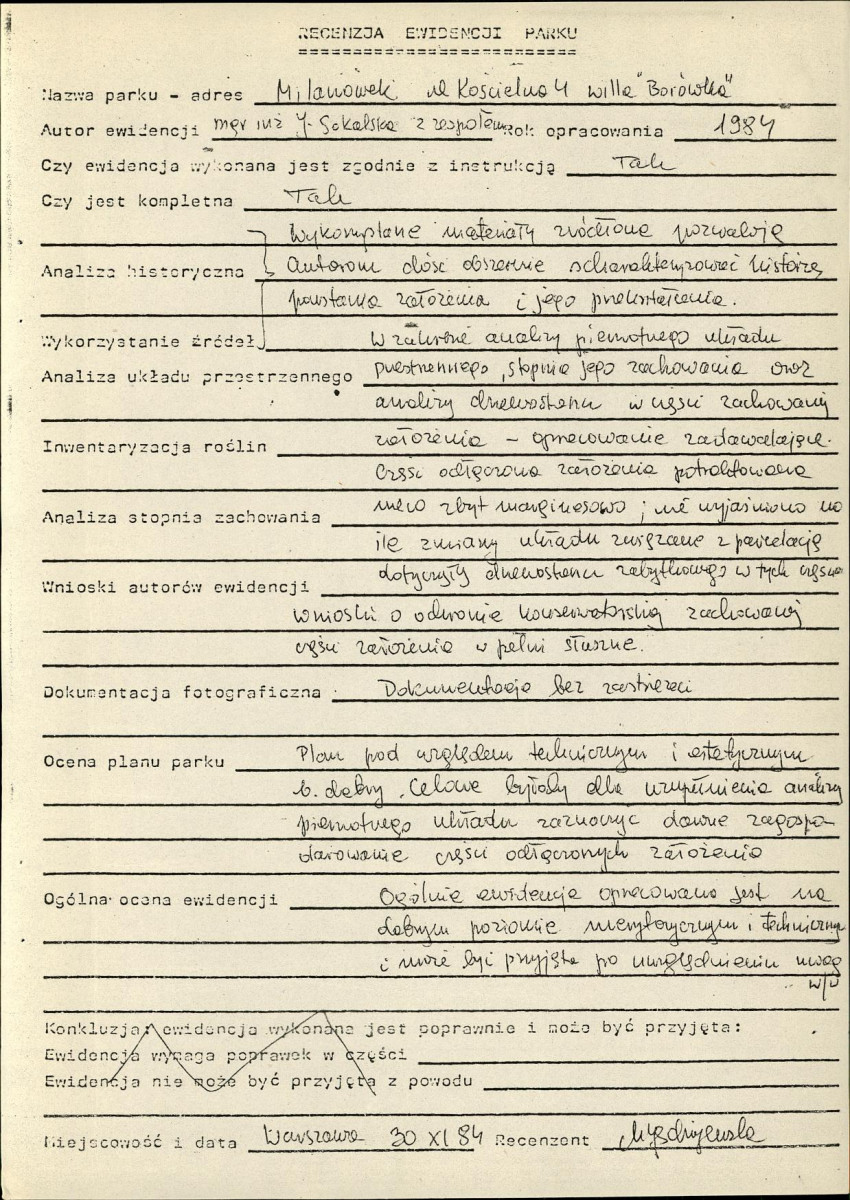 RECENZJA EWIDENCJI PARKU
Nazwa parku - adres Milanówek ul Kościelna 4 willa "Borówka"
Autor ewidencji mgr inż J. Sokalska z zespołem Rok opracowania 1984
Czy ewidencja wykonana jest zgodnie z instrukcją Tak
Czy jest kompletna Tak
Wykorzystane materiały źródłowe pozwalają
Analiza historyczna autorom dość obszernie scharakteryzować historię
powstania założenia i jego przekształcenia.
Wykorzystanie źródeł W zakresie analizy pierwotnego układu
Analiza układu przestrzennego przestrzennego, stopnia jego zachowania oraz
analizy drzewostanu w części zachowanej
Inwentaryzacja roślin założenia - opracowanie zadawalające.
Części odłączone założenia potraktowano
Analiza stopnia zachowania nieco zbyt marginesowo; nie wyjaśniono na
ile zmiany układu związane z parcelacją
Wnioski autorów ewidencji dotyczyły drzewostanu zabytkowego w tych
wnioski o ochronie konserwatorskiej zachowanej
części założenia w pełni słuszne.
Dokumentacja fotograficzna Dokumentacja bez zastrzeżeń
Ocena planu parku Plan pod względem technicznym i estetycznym
b. dobry. Celowe byłoby dla uzupełnienia analizy
pierwotnego układu zaznaczyć dawne zagospo
darowanie części odłączonych założenia
Ogólna ocena ewidencji Ogólnie ewidencja opracowana jest na
dobrym poziomie merytorycznym i techniczny
i może być przyjęta po uwzględnieniu uwag
w/w
Konkluzja: ewidencja wykonana jest poprawnie i może być przyjęta:
Ewidencja wymaga poprawek w części
Ewidencja nie może być przyjęta z powodu
Miejscowość i data Warszawa 30 XI 84 Recenzent